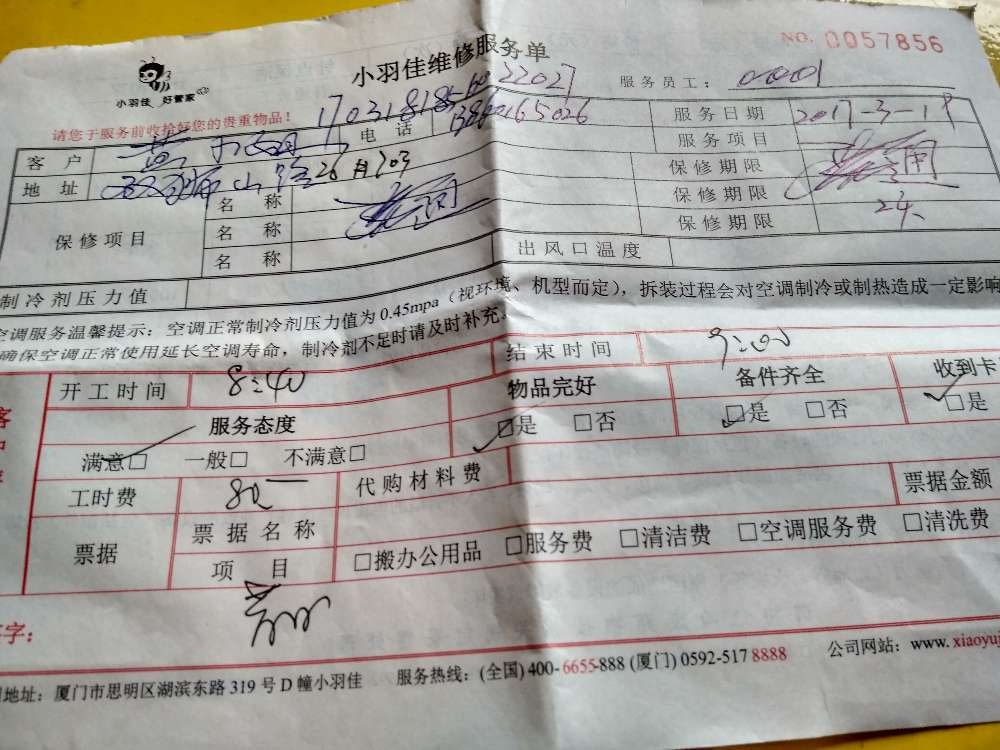 小羽佳维修服务单
NO. 0057856
小羽佳 好管家
请您于服务前收拾好您的贵重物品！
服务员工：
客户 电话 服务日期 2017-3-19
服务项目
地址 26 203 保修期限
保修项目 名称 保修期限
名称 保修期限 24
名称 出风口温度
制冷剂压力值
空调服务温馨提示：空调正常制冷剂压力值为0.45mpa（视环境、机型而定），拆装过程会对空调制冷或制热造成一定影响
确保空调正常使用延长空调寿命，制冷剂不足时请及时补充。
开工时间 8:40 结束时间 9:00
服务态度 物品完好 备件齐全 收到卡
满意□ 一般□ 不满意□ □是 □否 □是 □否 □是
工时费 80 代购材料费 票据金额
票据 票据名称 □搬办公用品 □服务费 □清洁费 □空调服务费 □清洗费
项目
字：
地址：厦门市思明区湖滨东路319号D幢小羽佳 服务热线：(全国) 400-6655-888 (厦门) 0592-517 8888 公司网站：www. xiaoyuj